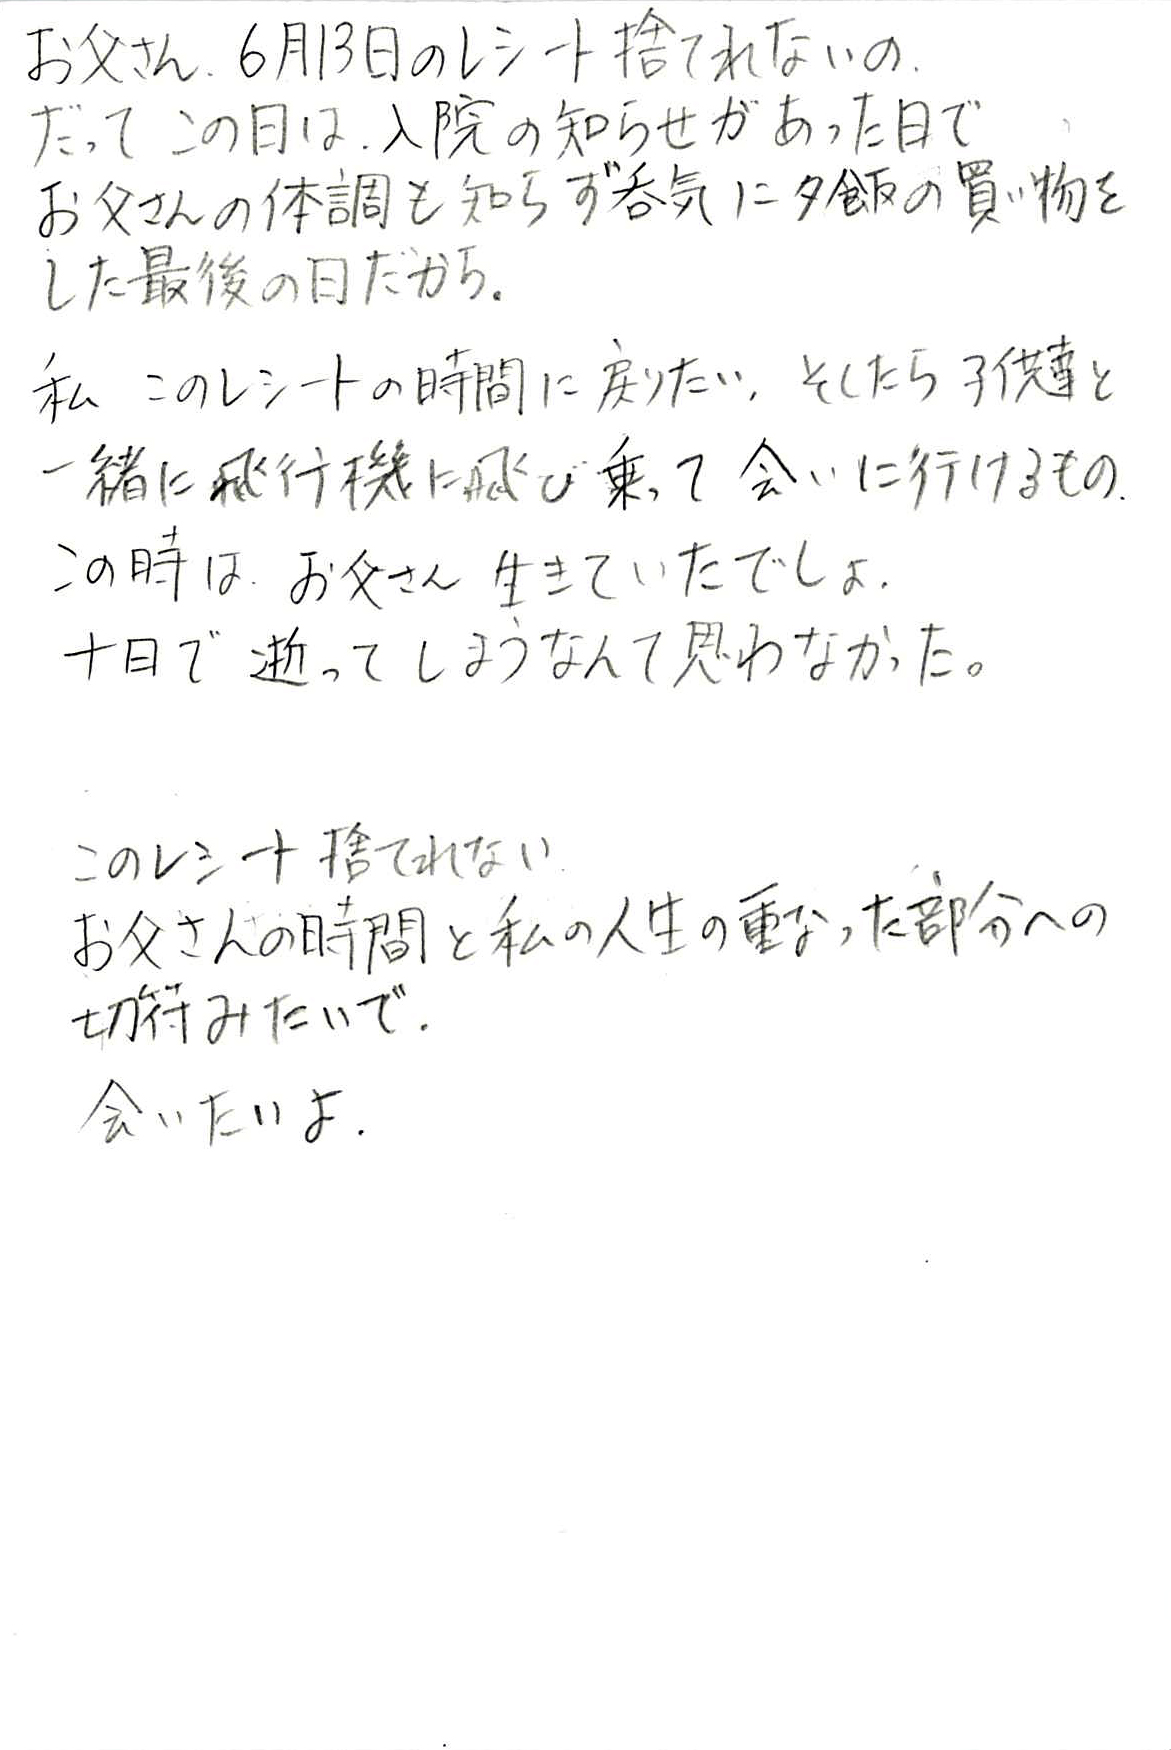 お父さん、6月13日のレシート捨てれないの、
だってこの日は、入院の知らせがあった日で
お父さんの体調も知らず呑気に夕飯の買い物を
した最後の日だから。
私 このレシートの時間に戻りたい、そしたら子供達と
一緒に飛行機に飛び乗って会いに行けるもの、
この時は、お父さん生きていたでしょ、
十日で逝ってしまうなんて思わなかった。
このレシート捨てれない
お父さんの時間と私の人生の重なった部分への
切符みたいで、
会いたいよ、